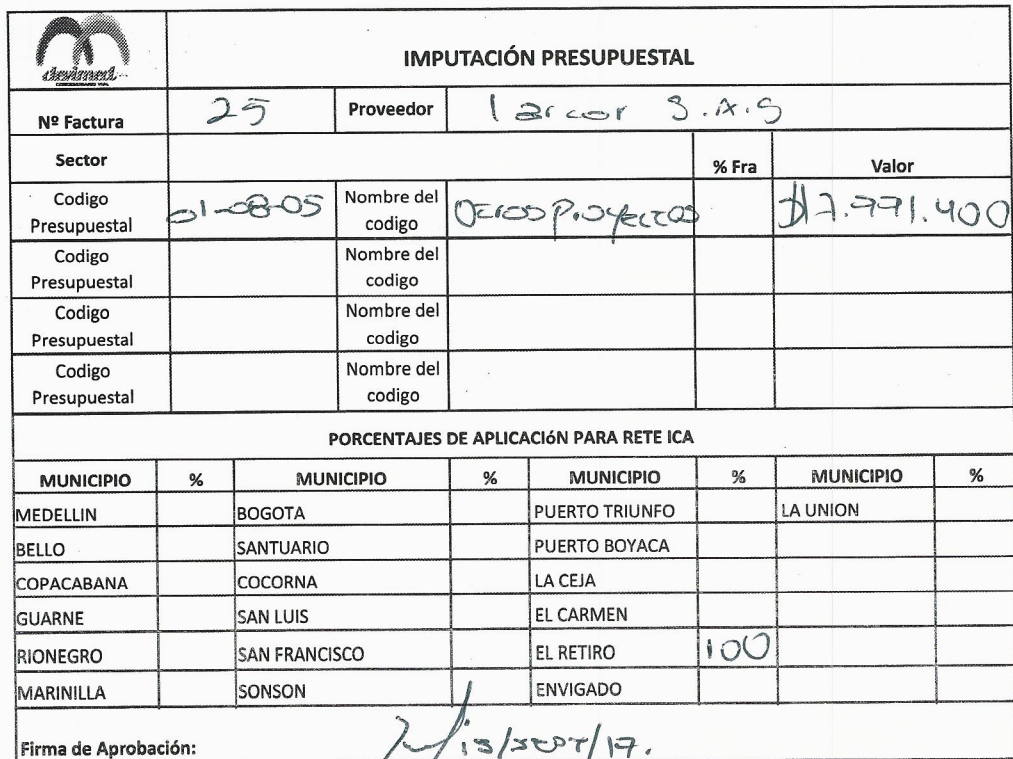 devimed
CONCESIONARIO VIAL
IMPUTACIÓN PRESUPUESTAL
Nº Factura 25 Proveedor Iarcor S.A.S
Sector % Fra Valor
Codigo Presupuestal 01-08-05 Nombre del codigo Otros Proyectos $17.991.400
Codigo Presupuestal Nombre del codigo
Codigo Presupuestal Nombre del codigo
Codigo Presupuestal Nombre del codigo
PORCENTAJES DE APLICACIóN PARA RETE ICA
MUNICIPIO % MUNICIPIO % MUNICIPIO % MUNICIPIO %
MEDELLIN BOGOTA PUERTO TRIUNFO LA UNION
BELLO SANTUARIO PUERTO BOYACA
COPACABANA COCORNA LA CEJA
GUARNE SAN LUIS EL CARMEN
RIONEGRO SAN FRANCISCO EL RETIRO 100
MARINILLA SONSON ENVIGADO
Firma de Aprobación: 13/sept/17.